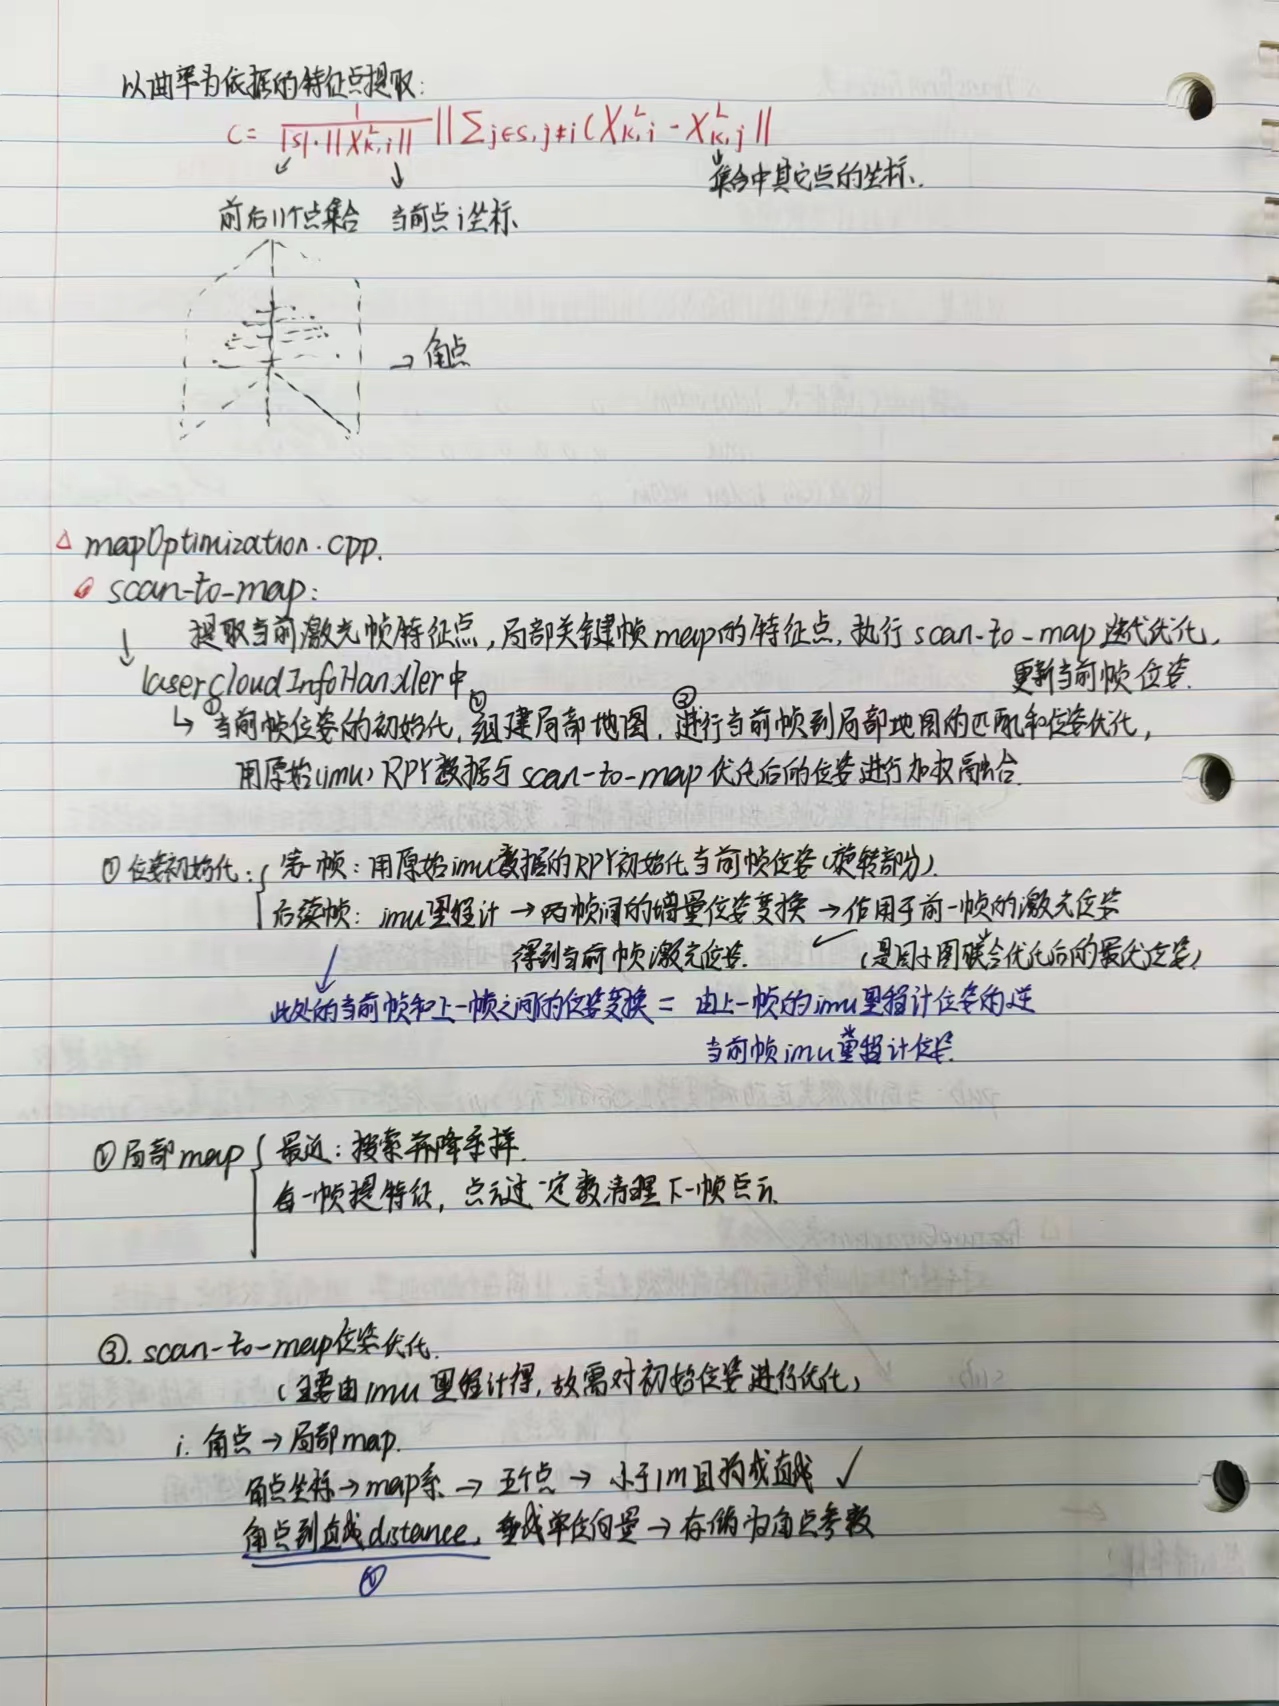 以曲率为依据的特征点提取:
C = 1 / (|S|·||X^L_{k,i}||) ||∑_{j∈S,j≠i}(X^L_{k,i} - X^L_{k,j}||
集合中其它点的坐标.
前后11个点集合 当前点i坐标
→ 角点
△ mapOptimization.cpp.
scan-to-map:
提取当前激光帧特征点,局部关键帧map的特征点,执行scan-to-map迭代优化,
更新当前帧位姿.
↓ laserCloudInfoHandler中
↳ ①当前帧位姿的初始化,②组建局部地图,③进行当前帧到局部地图的匹配和位姿优化,
用原始(imu) RPY数据与scan-to-map优化后的位姿进行加权融合.
①位姿初始化: { 第一帧:用原始imu数据的RPY初始化当前帧位姿(旋转部分).
后续帧: imu里程计→两帧间的增量位姿变换→作用于前一帧的激光位姿
得到当前帧激光位姿. (是因子图联合优化后的最优位姿)
此处的当前帧和上一帧之间的位姿变换 = 由上一帧的imu里程计位姿的逆
* 当前帧imu里程计位姿.
②局部map { 最近:搜索并降采样.
每一帧提特征,点云过一定数清理下一帧点云
③. scan-to-map位姿优化.
(主要由imu里程计得,故需对初始位姿进行优化)
i. 角点→局部map.
角点坐标→map系→五个点→小于1m且构成直线 ✓
角点到直线distance,垂线单位向量→存储为角点参数